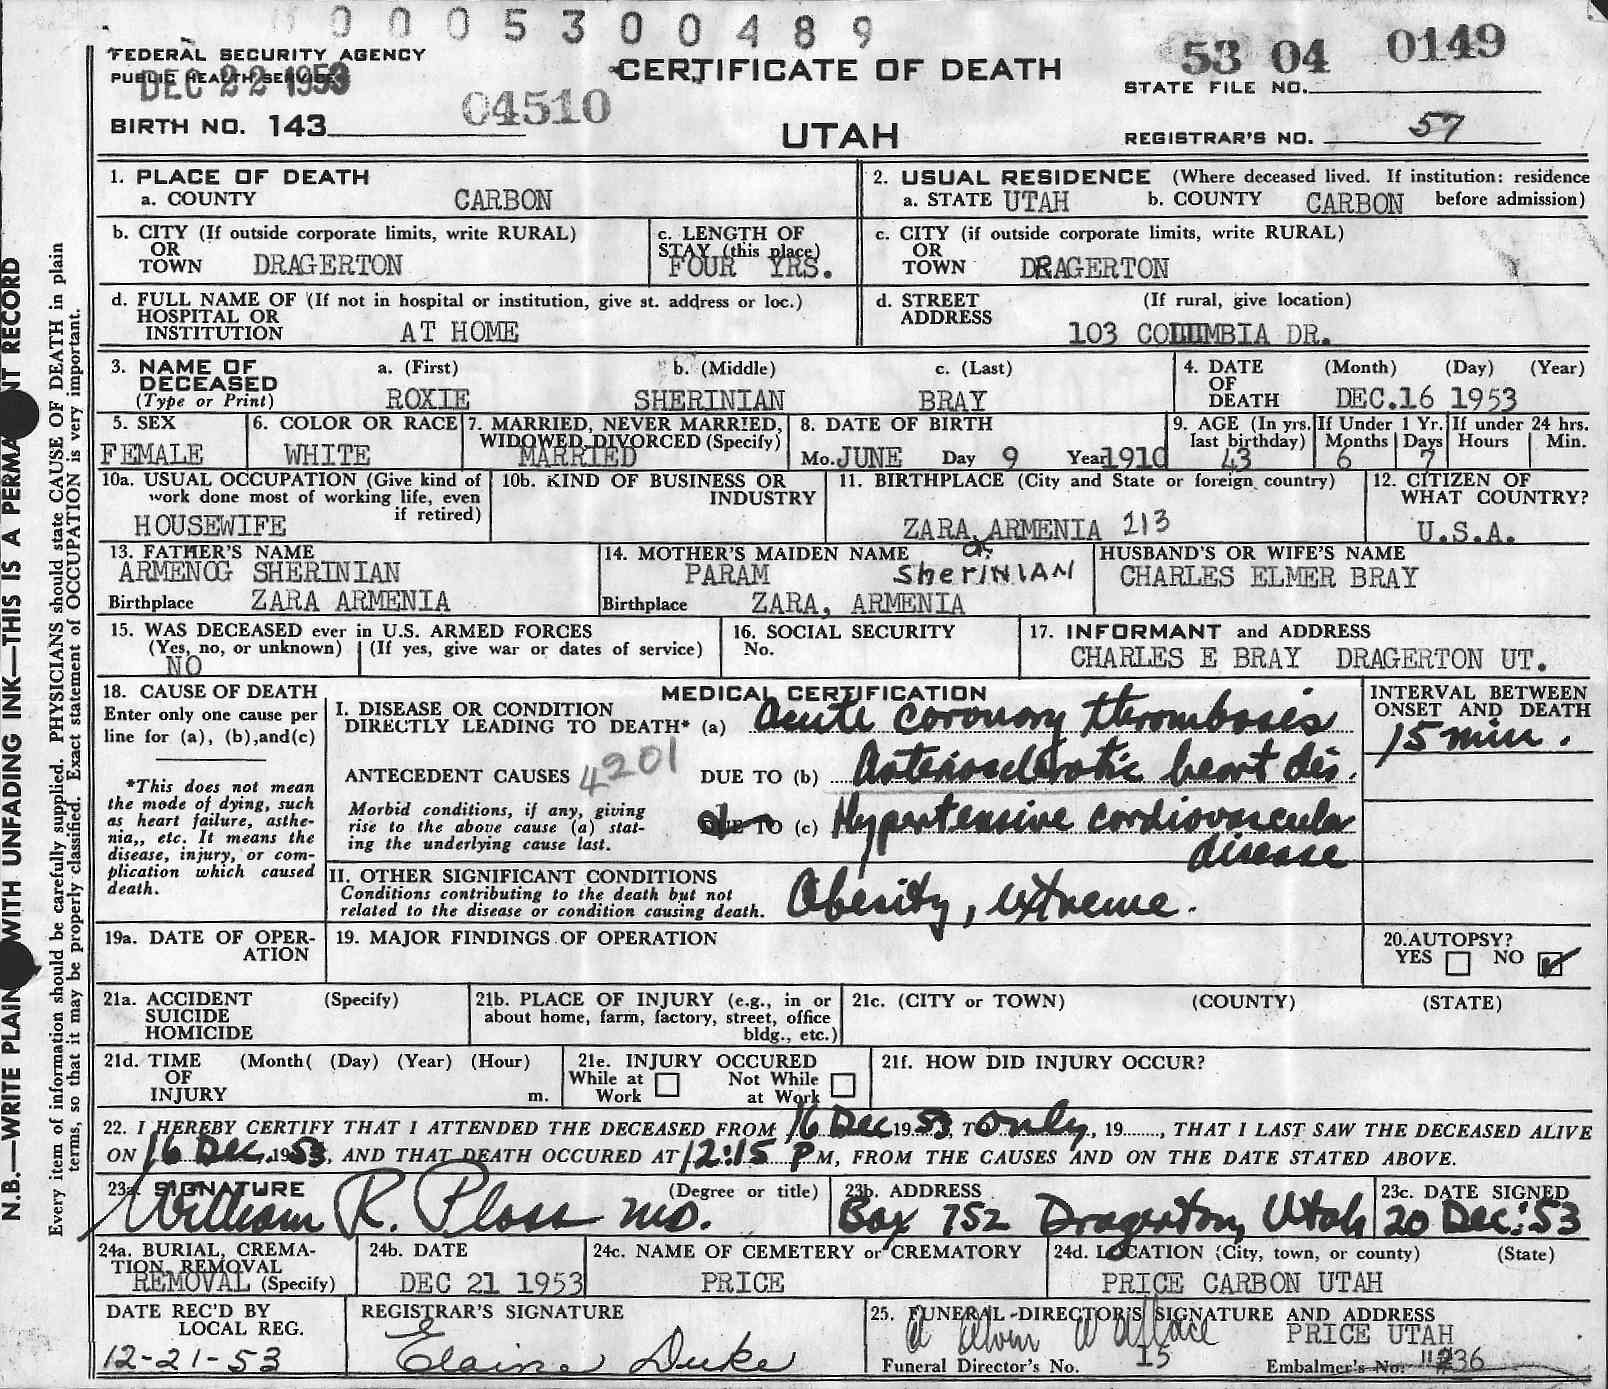 0 0 0 5 3 0 0 4 8 9
FEDERAL SECURITY AGENCY
PUBLIC HEALTH SERVICE
DEC 22 1953
CERTIFICATE OF DEATH
53 04 0149
STATE FILE NO.
BIRTH NO. 143
04510
UTAH
REGISTRAR'S NO. 57
1. PLACE OF DEATH
a. COUNTY CARBON
2. USUAL RESIDENCE (Where deceased lived. If institution: residence
a. STATE UTAH b. COUNTY CARBON before admission)
b. CITY (If outside corporate limits, write RURAL)
OR
TOWN DRAGERTON
c. LENGTH OF
STAY (this place)
FOUR YRS.
c. CITY (if outside corporate limits, write RURAL)
OR
TOWN DRAGERTON
d. FULL NAME OF (If not in hospital or institution, give st. address or loc.)
HOSPITAL OR
INSTITUTION AT HOME
d. STREET (If rural, give location)
ADDRESS
103 COLUMBIA DR.
3. NAME OF a. (First) b. (Middle) c. (Last)
DECEASED
(Type or Print) ROXIE SHERINIAN BRAY
4. DATE (Month) (Day) (Year)
OF
DEATH DEC.16 1953
5. SEX
FEMALE
6. COLOR OR RACE
WHITE
7. MARRIED, NEVER MARRIED,
WIDOWED, DIVORCED (Specify)
MARRIED
8. DATE OF BIRTH
Mo. JUNE Day 9 Year 1910
9. AGE (In yrs.
last birthday)
43
If Under 1 Yr.
Months Days
6 7
If under 24 hrs.
Hours Min.
10a. USUAL OCCUPATION (Give kind of
work done most of working life, even
if retired)
HOUSEWIFE
10b. KIND OF BUSINESS OR
INDUSTRY
11. BIRTHPLACE (City and State or foreign country)
ZARA, ARMENIA 213
12. CITIZEN OF
WHAT COUNTRY?
U.S.A.
13. FATHER'S NAME
ARMENOG SHERINIAN
Birthplace ZARA ARMENIA
14. MOTHER'S MAIDEN NAME
PARAM SherINIAN
Birthplace ZARA, ARMENIA
HUSBAND'S OR WIFE'S NAME
CHARLES ELMER BRAY
15. WAS DECEASED ever in U.S. ARMED FORCES
(Yes, no, or unknown) (If yes, give war or dates of service)
NO
16. SOCIAL SECURITY
No.
17. INFORMANT and ADDRESS
CHARLES E BRAY DRAGERTON UT.
18. CAUSE OF DEATH
Enter only one cause per
line for (a), (b),and(c)
*This does not mean
the mode of dying, such
as heart failure, asthe-
nia,, etc. It means the
disease, injury, or com-
plication which caused
death.
MEDICAL CERTIFICATION
I. DISEASE OR CONDITION
DIRECTLY LEADING TO DEATH* (a) Acute coronary thrombosis
ANTECEDENT CAUSES 4201 DUE TO (b) Arteriosclerotic heart dis.
Morbid conditions, if any, giving
rise to the above cause (a) stat-
ing the underlying cause last.
DUE TO (c) Hypertensive cardiovascular
disease
INTERVAL BETWEEN
ONSET AND DEATH
15 min.
II. OTHER SIGNIFICANT CONDITIONS
Conditions contributing to the death but not
related to the disease or condition causing death. Obesity, extreme.
19a. DATE OF OPER-
ATION
19. MAJOR FINDINGS OF OPERATION
20.AUTOPSY?
YES NO
21a. ACCIDENT (Specify)
SUICIDE
HOMICIDE
21b. PLACE OF INJURY (e.g., in or
about home, farm, factory, street, office
bldg., etc.)
21c. (CITY or TOWN) (COUNTY) (STATE)
21d. TIME (Month( (Day) (Year) (Hour)
OF
INJURY m.
21e. INJURY OCCURED
While at Not While
Work at Work
21f. HOW DID INJURY OCCUR?
22. I HEREBY CERTIFY THAT I ATTENDED THE DECEASED FROM 16 Dec 1953, TO only, 19......., THAT I LAST SAW THE DECEASED ALIVE
ON 16 Dec. 1953, AND THAT DEATH OCCURED AT 12:15 P M, FROM THE CAUSES AND ON THE DATE STATED ABOVE.
23a. SIGNATURE (Degree or title)
William R. Ploss MD.
23b. ADDRESS
Box 752 Dragerton, Utah
23c. DATE SIGNED
20 Dec. 53
24a. BURIAL, CREMA-
TION, REMOVAL
REMOVAL (Specify)
24b. DATE
DEC 21 1953
24c. NAME OF CEMETERY or CREMATORY
PRICE
24d. LOCATION (City, town, or county) (State)
PRICE CARBON UTAH
DATE REC'D BY
LOCAL REG.
12-21-53
REGISTRAR'S SIGNATURE
Elaine Duke
25. FUNERAL DIRECTOR'S SIGNATURE AND ADDRESS
Wallace PRICE UTAH
Funeral Director's No. 15 Embalmer's No. 236
N.B.—WRITE PLAIN WITH UNFADING INK—THIS IS A PERMA NT RECORD
Every item of information should be carefully supplied. PHYSICIANS should state CAUSE OF DEATH in plain
terms, so that it may be properly classified. Exact statement of OCCUPATION is very important.